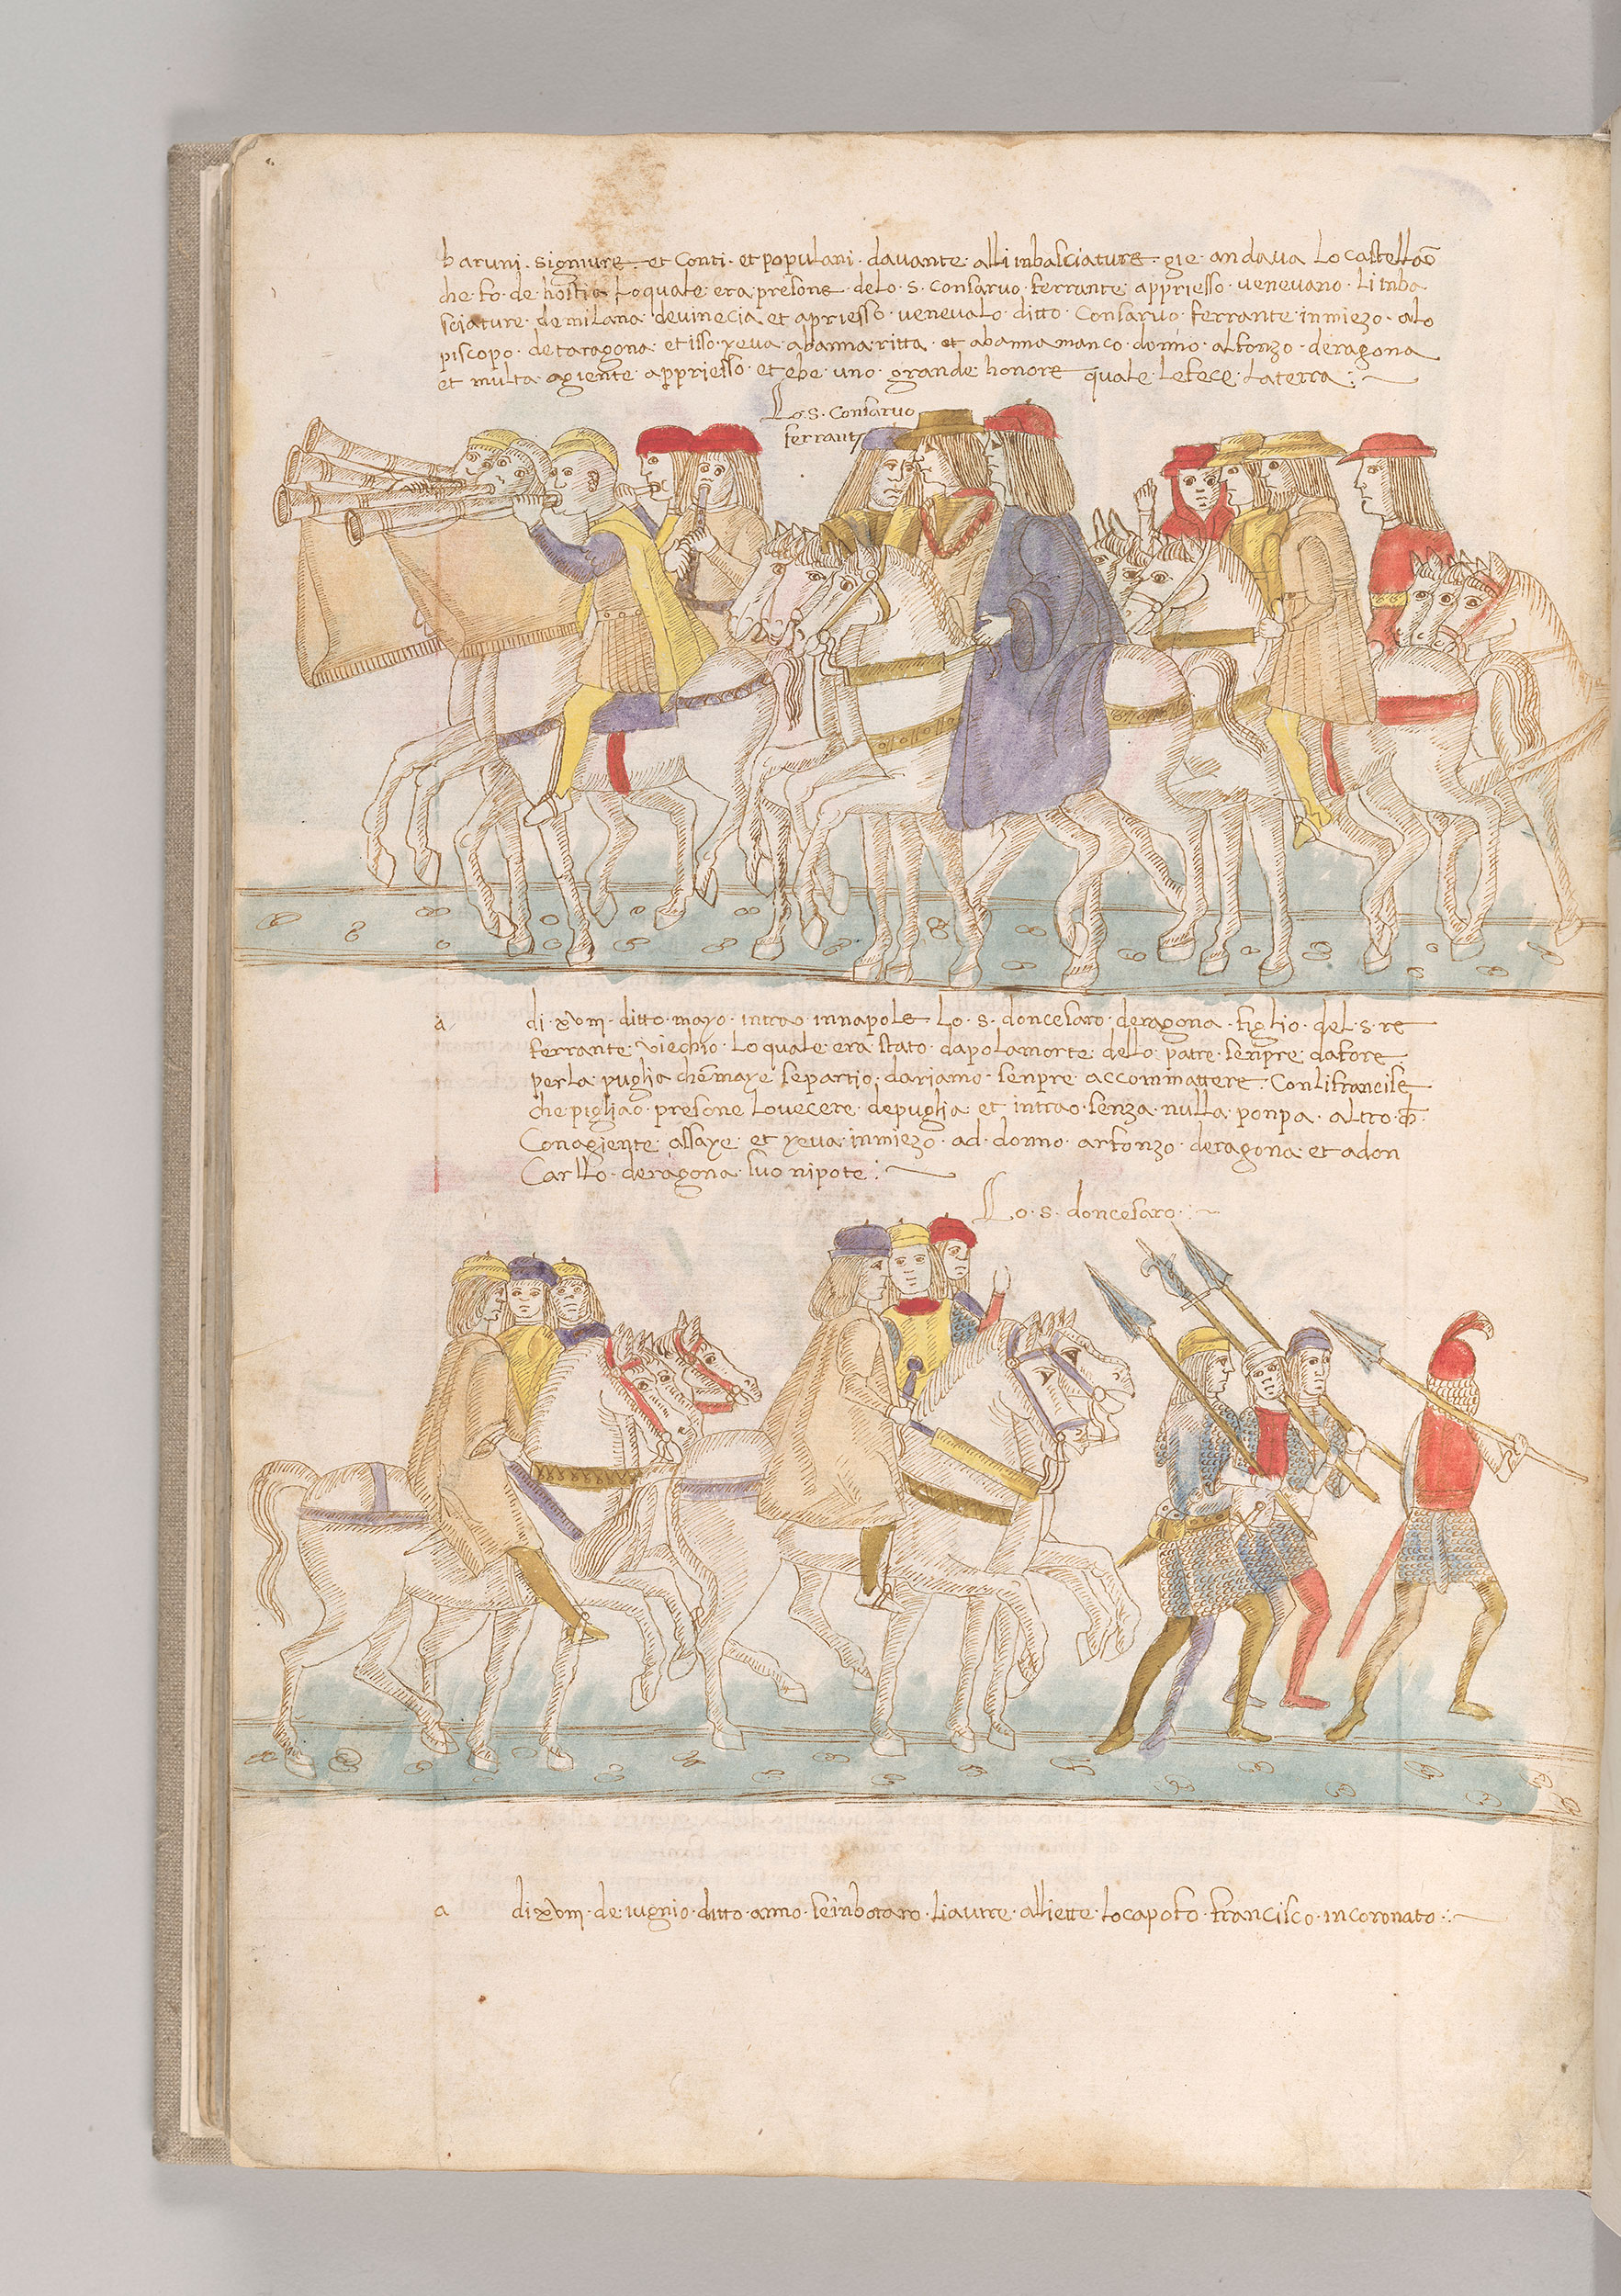 baruni · signiure · et Conti · et populani · davante · all inbasciature · gie · andava Lo castellaō
che fo · de hostia Loquale · era presone · delo · s · Consarvo · ferrante · appriesso · venevano · Li inba
sciature · de milana · de vinecia et apriesso · venevalo · ditto · Consarvo · ferrante · in miezo · alo
piscopo · de taragona · et isso · yeva · abanna ritta · et abanna manco · donno · alfonzo · deragona
et multa · agiente · appriesso · et ebe · uno · grande · honore · quale · Lefece · Laterra :~
Lo · s · Consarvo
ferrante
a · di · xviii · ditto · mayo · intrao · innapole · Lo · s · doncesaro · deragona · figlio · del · s · re
ferrante · viechio · Lo quale · era stato · dapo lamorte · dello · patre · senpre · dafore
per la · puglia che maye · se partio · dariano · senpre · accommattere · Conli francise
che pigliao · presone · Lovecere · depuglia · et · intrao · senza · nulla · ponpa · altro · ch̄
Conagiente · assaye · et yeva · inmiezo · ad · donno · arfonzo · deragona · et adon
Carllo · deragona · suo nipote :~
Lo · s · doncesaro :~
a · di xviii · de iugnio · ditto · anno · seinbotaro · Li aurre · alliette · Locapo fo · francisco · incoronato :~